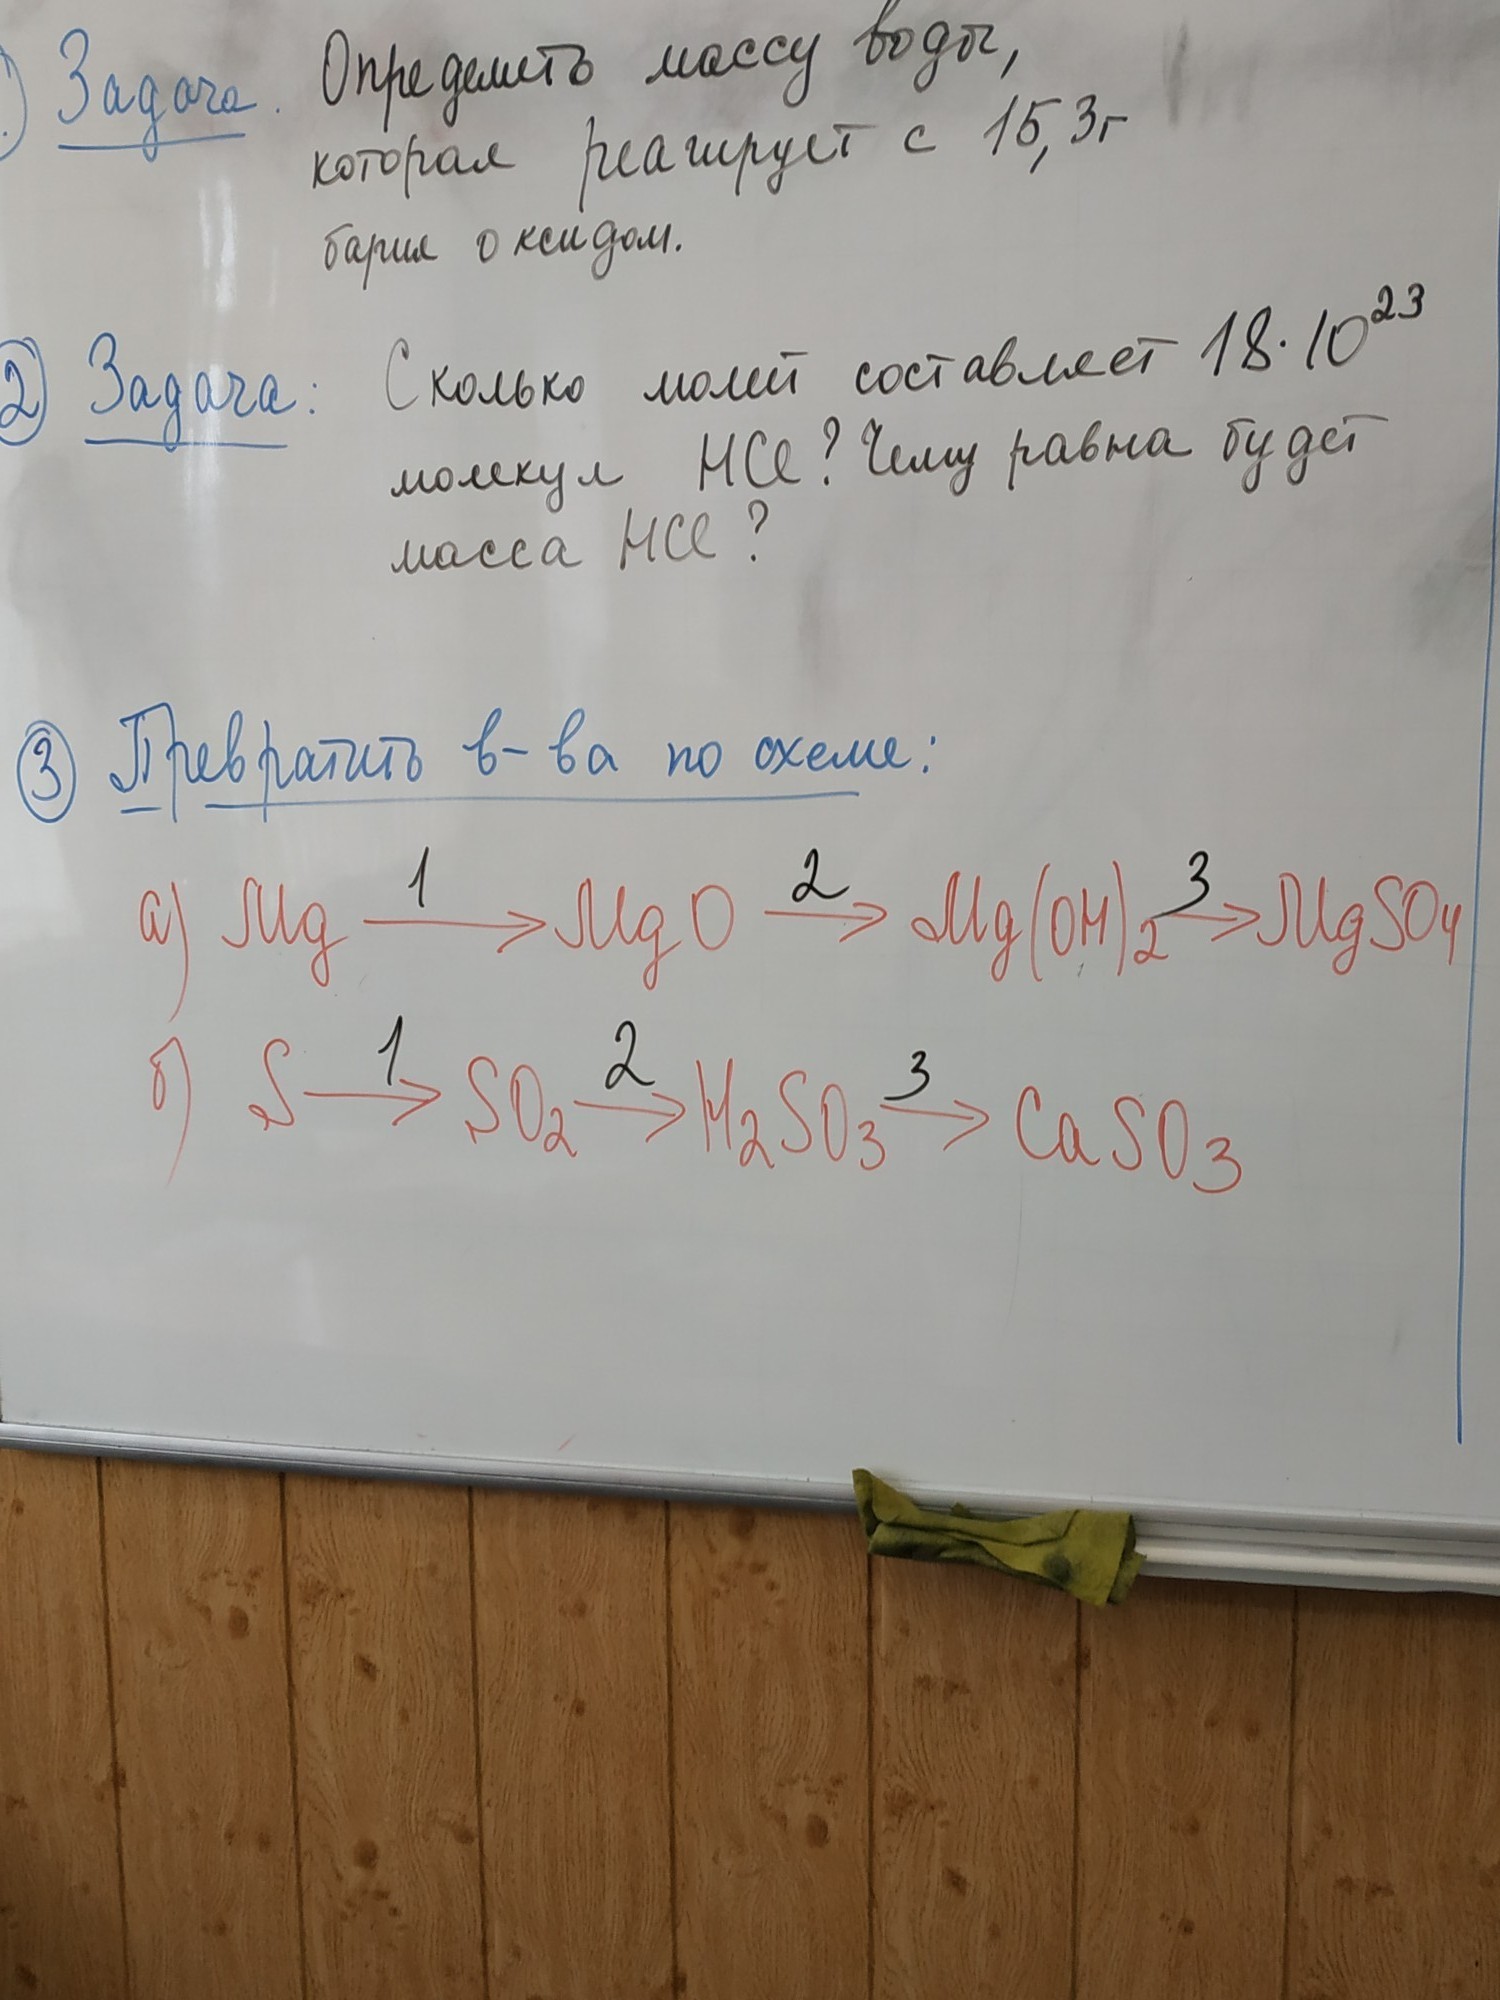 1) Задача. Определить массу воды,
которая реагирует с 15,3г
бария оксидом.
2) Задача: Сколько молей составляет 18·10²³
молекул HCl? Чему равна будет
масса HCl?
3) Превратить в-ва по схеме:
а) Mg —1→ MgO —2→ Mg(OH)₂ —3→ MgSO₄
б) S —1→ SO₂ —2→ H₂SO₃ —3→ CaSO₃